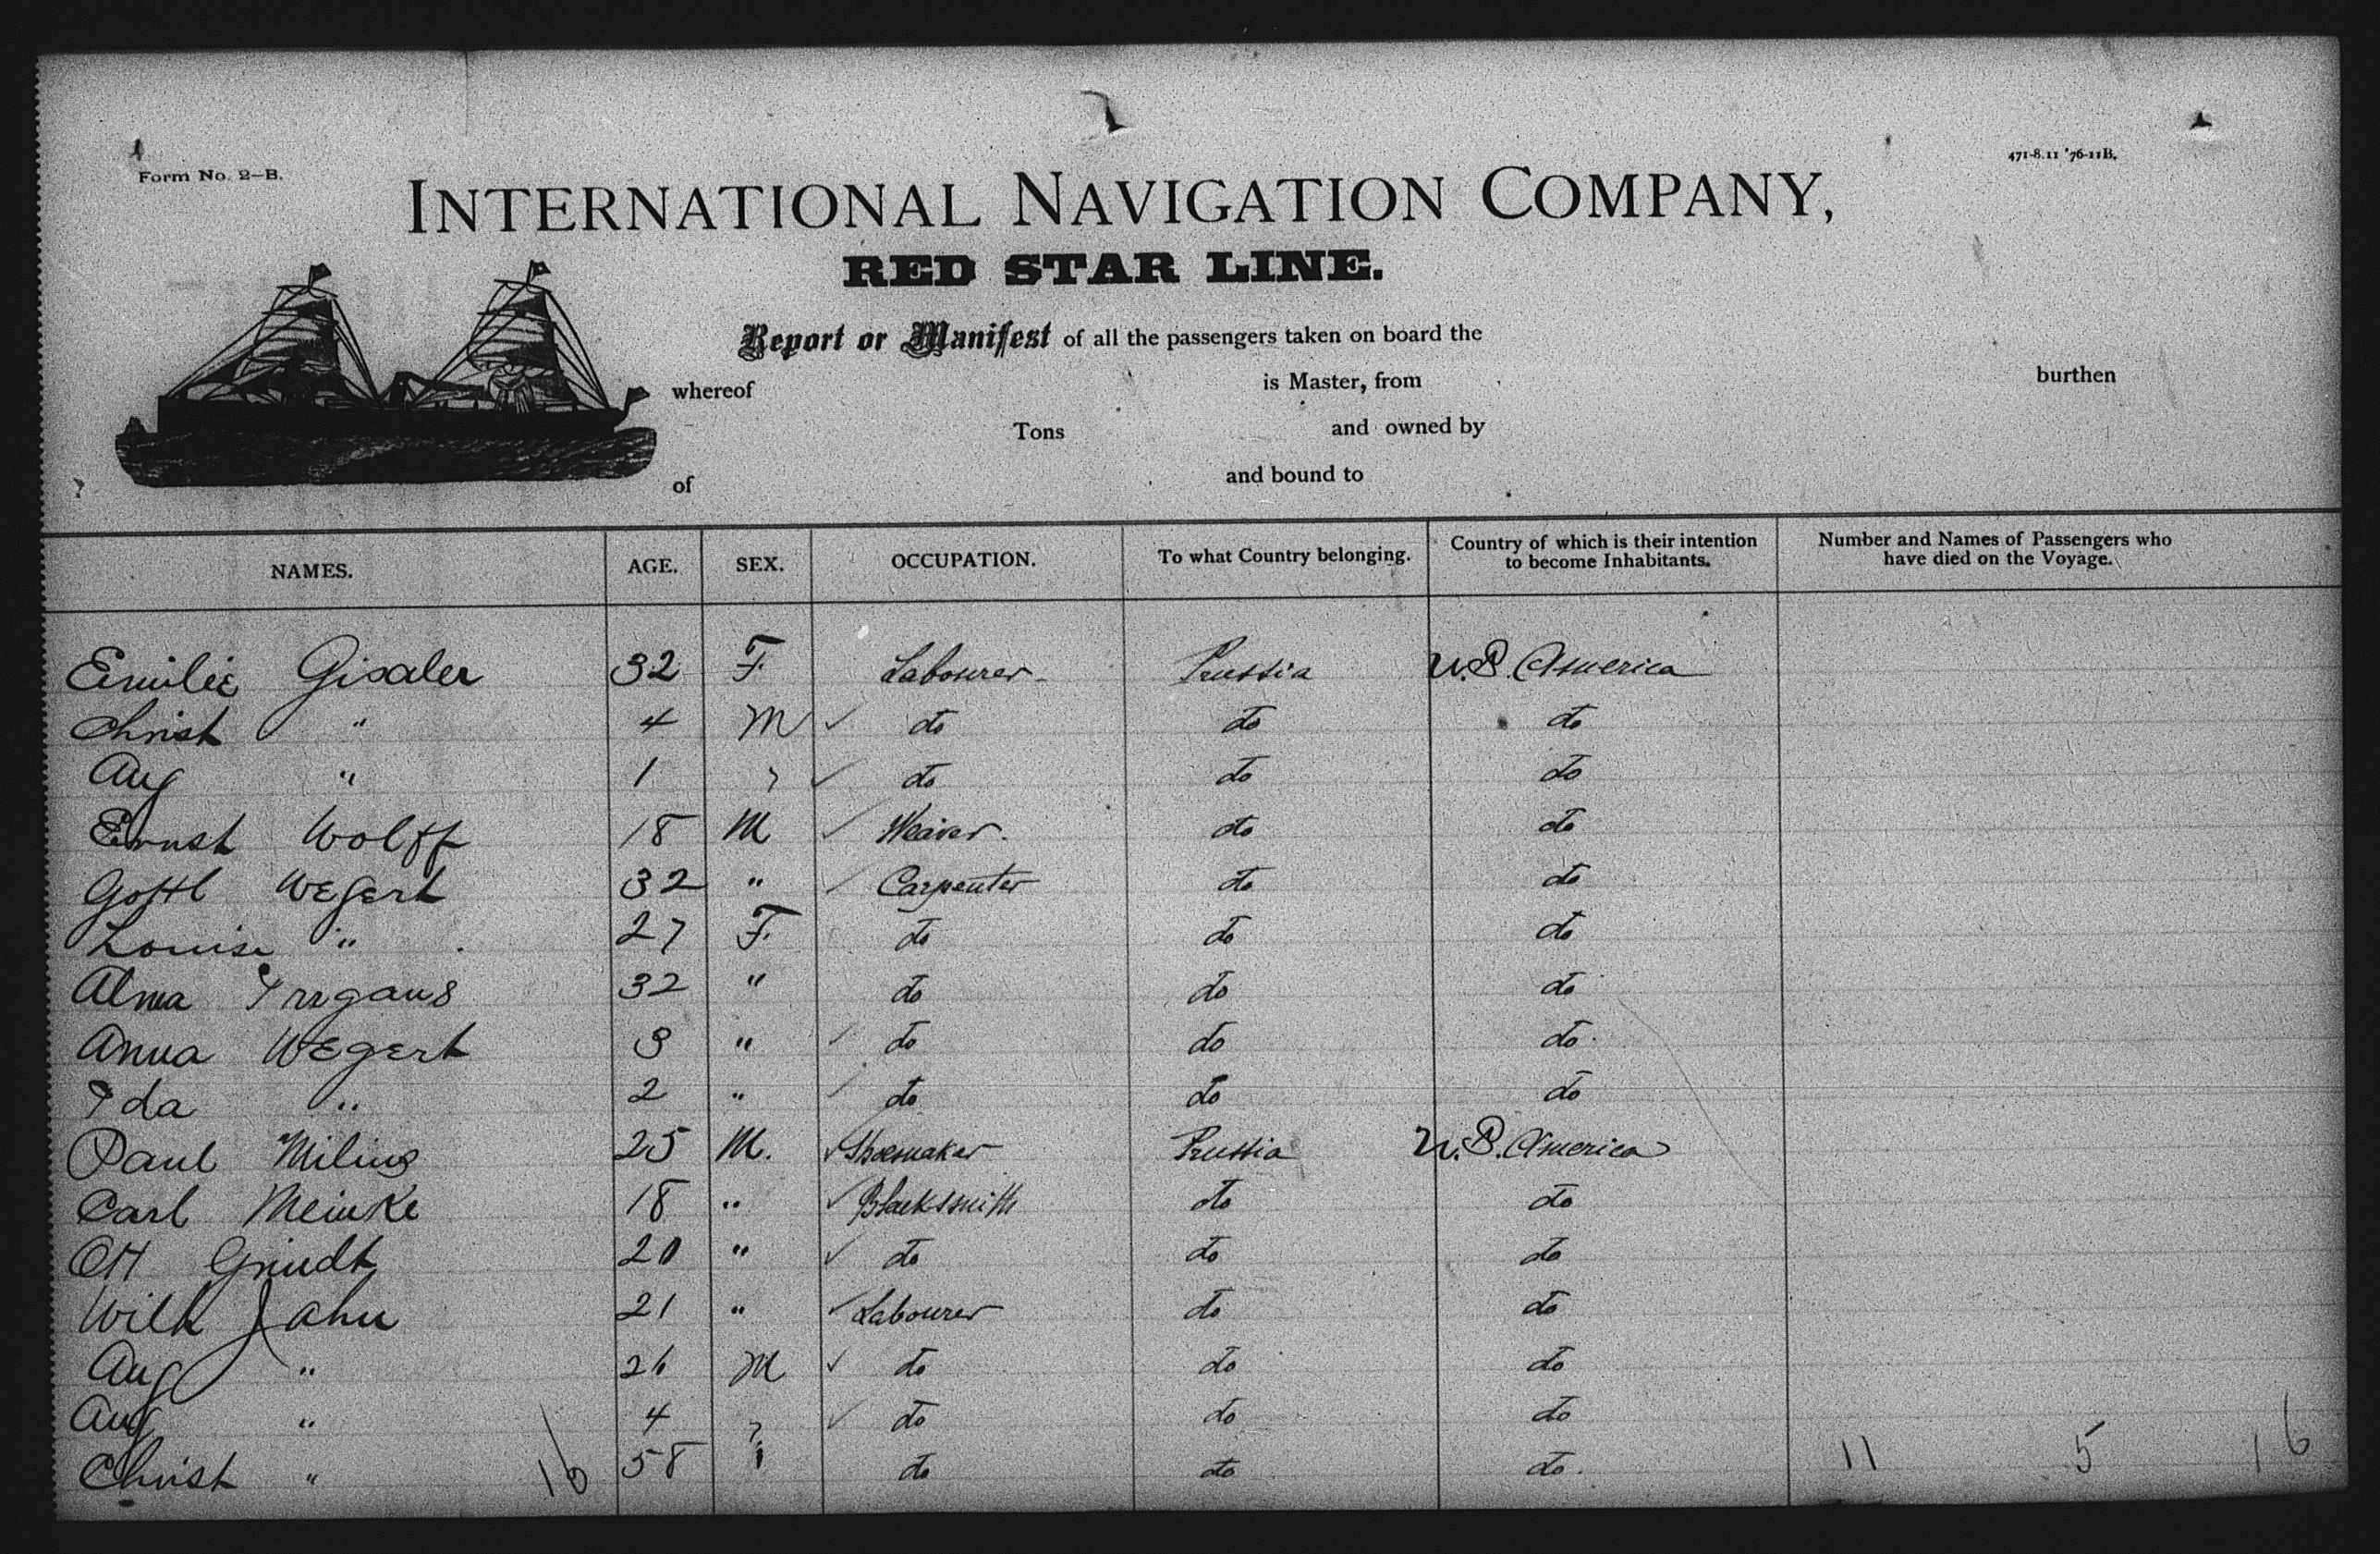 Form No. 2–B.
471-8.11 '76-11B.
INTERNATIONAL NAVIGATION COMPANY,
RED STAR LINE.
Report or Manifest of all the passengers taken on board the
whereof is Master, from burthen
Tons and owned by
of and bound to
NAMES. AGE. SEX. OCCUPATION. To what Country belonging. Country of which is their intention to become Inhabitants. Number and Names of Passengers who have died on the Voyage.
Emilie Gisaler 32 F. Labourer Prussia U.S. America
Christ " 4 M ✓ do do do
Aug " 1 ✓ do do do
Ernst Wolff 18 M ✓ Weaver. do do
Gottl Wegert 32 " ✓ Carpenter do do
Louise " 27 F. do do do
Alma 32 " do do do
Anna Wegert 3 " ✓ do do do
Ida " 2 " ✓ do do do
Paul Milius 25 M. ✓ Shoemaker Prussia U.S. America
Carl Meinke 18 " ✓ Blacksmith do do
Ott Grindt 20 " ✓ do do do
Wilh Jahn 21 " ✓ Labourer do do
Aug " 26 M ✓ do do do
Aug " 4 ✓ do do do
Christ " 16 58 do do do. 11 5 16